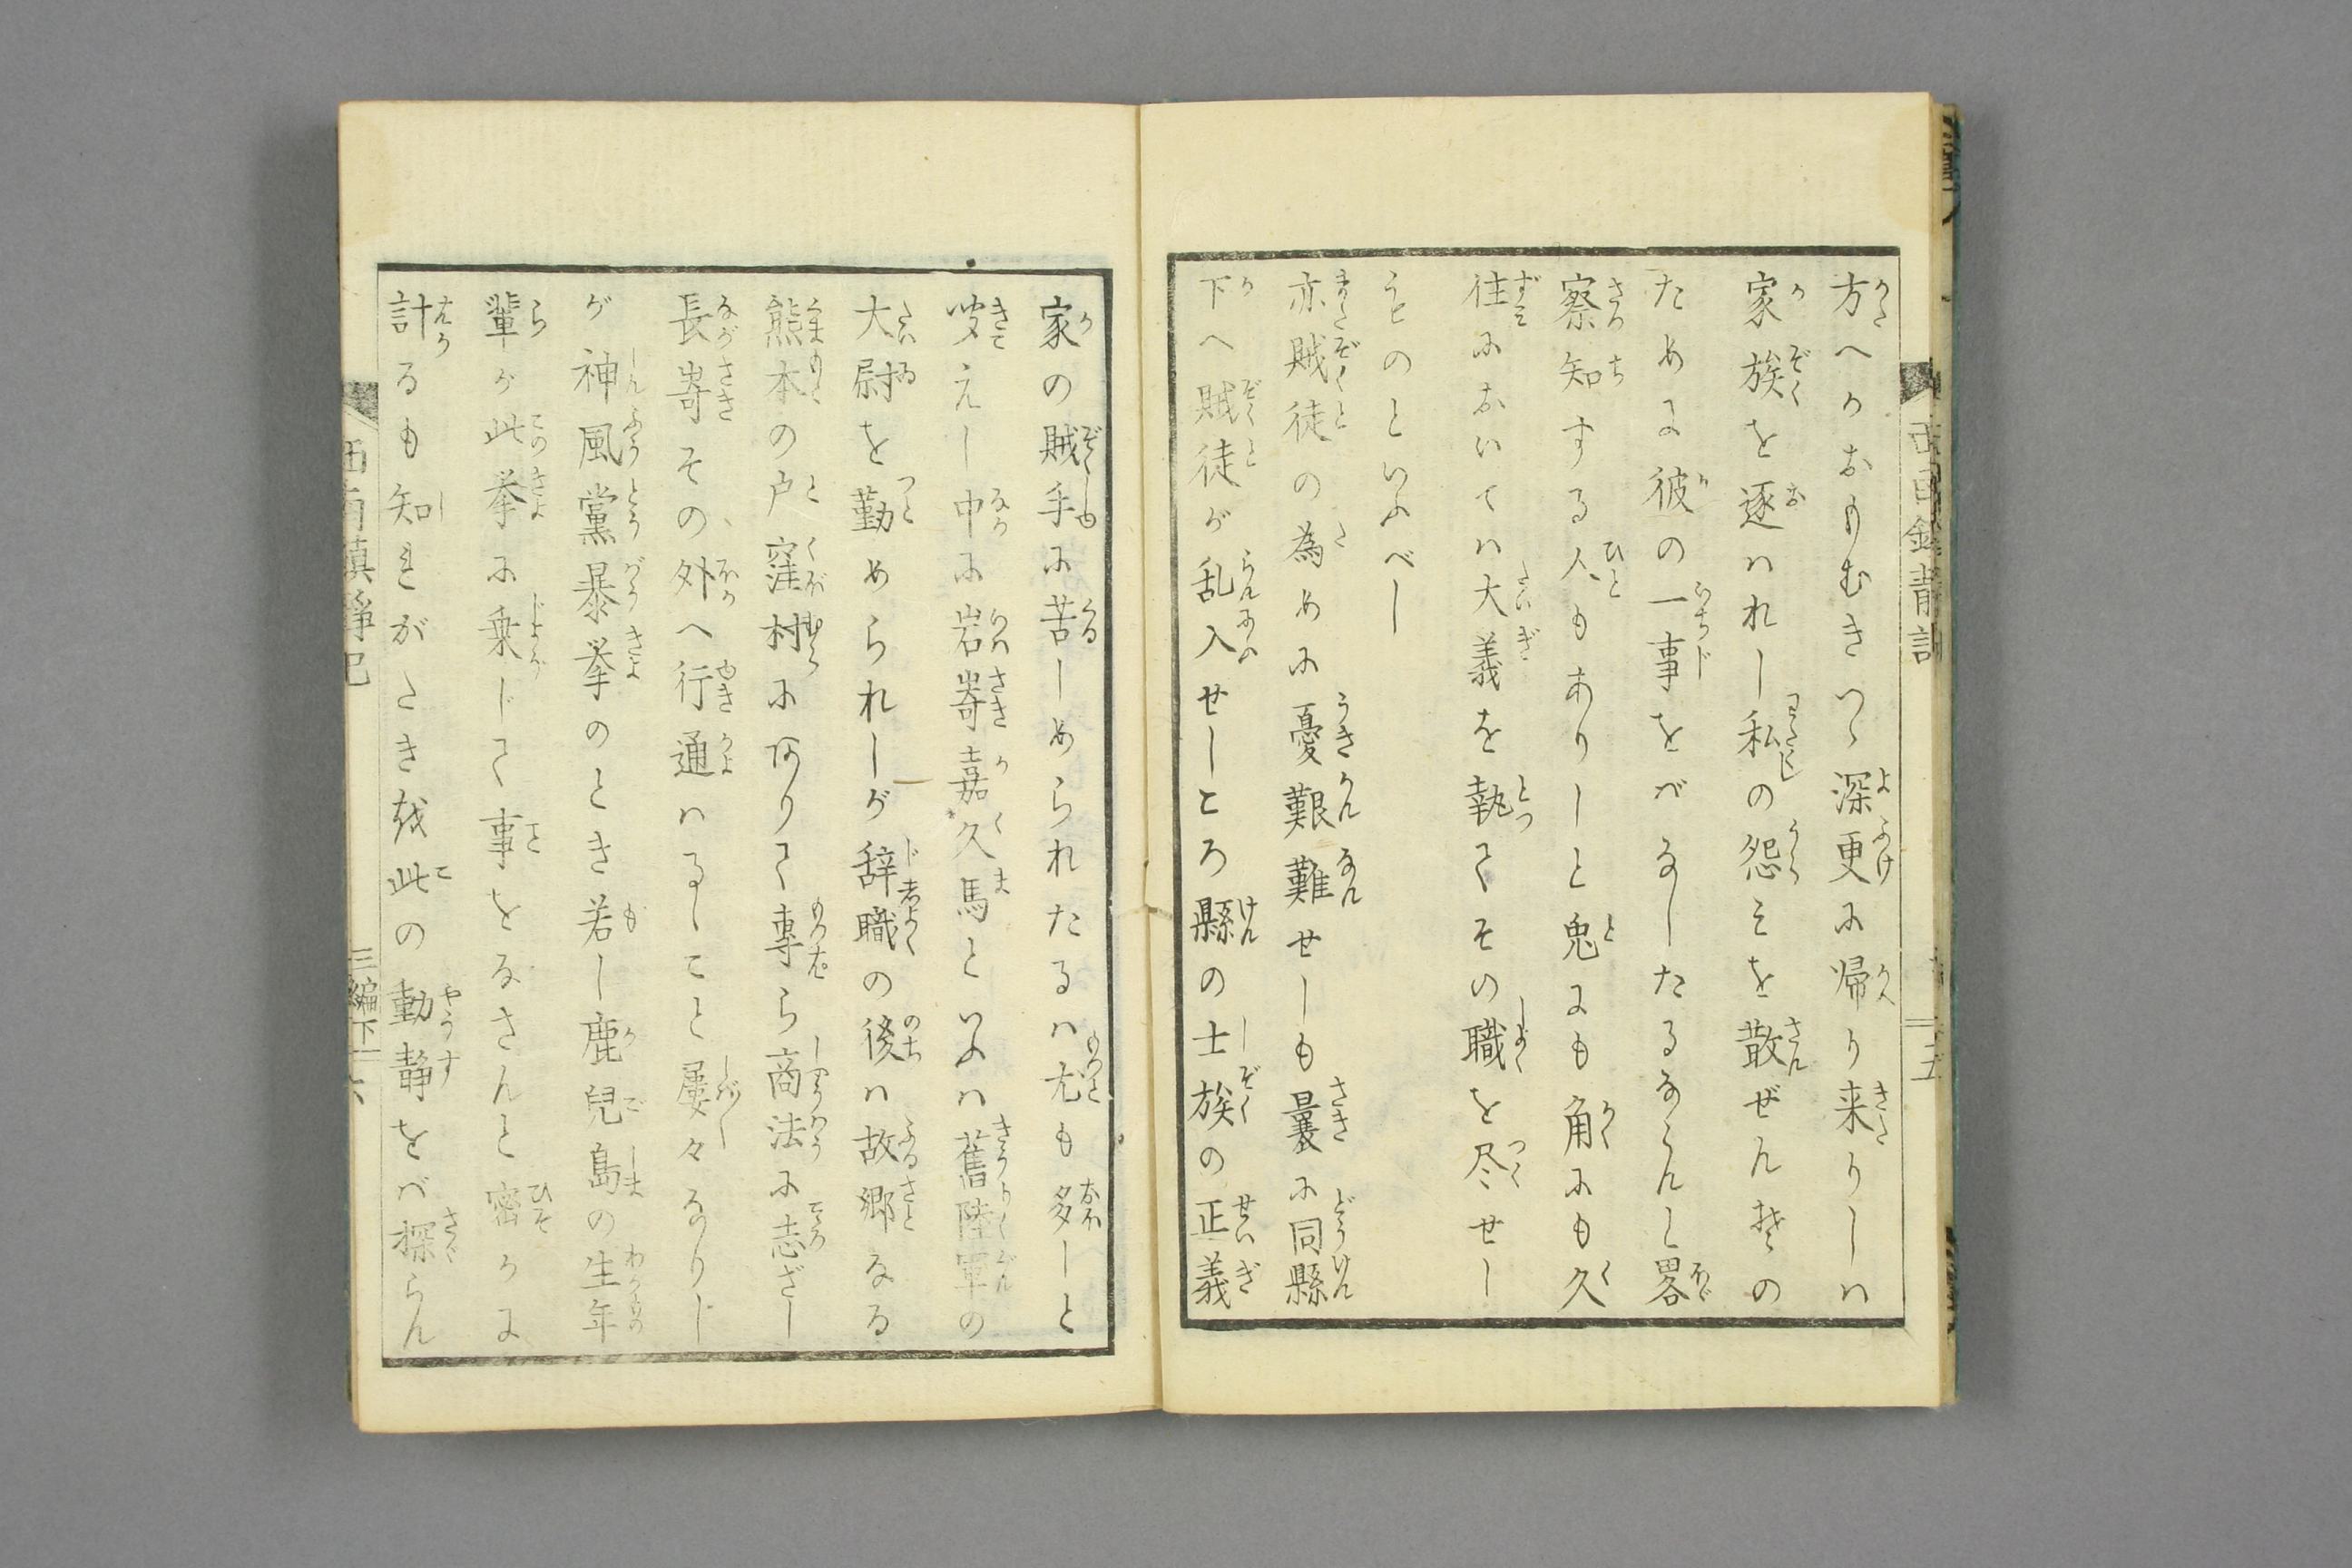 方へかおもむきつゝ深更に帰り来りしハ
家族を逐ハれし私の怨ミを散ぜん其の
ために彼の一事をバなしたるならんと畧
察知する人もありしと兎にも角にも久
往においてハ大義を執てその職を尽せし
ものといふべし
亦賊徒の為めに憂艱難せしも曩に同縣
下へ賊徒が乱入せしところ縣の士族の正義
家の賊手に苦しめられたるハ尤も多しと
聞えし中に岩嵜嘉久馬といふハ舊陸軍の
大尉を勤められしが辞職の後ハ故郷なる
熊本の戸窪村に在りて専ら商法に志ざし
長嵜その外へ行通ハるゝこと屡々なりし
が神風黨暴挙のとき若し鹿兒島の生年
輩が此挙に乗じて事をなさんと密かに
計るも知れがたき故此の動静をバ探らん
西南鎮静記
三編下
六